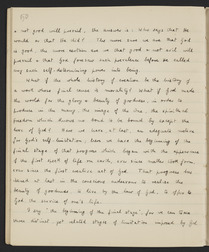 60
a not good will prevail, the answer is: Who says that he
would or that He did? The more sure we are that God
is good, the more certain are we that good & not evil will
prevail & that God foresaw such freedom before he called
any such self-determining power into being.
What if the whole history of creation be the history of
a word whose final issue is morality? What if God made
the world for the glory & beauty of goodness, in order to
produce in the many the image of the One, the spiritual
freedom which knows no bond to be bound by except the
love of God? Have we here, at last, an adequate motive
for God's self-limitation; have we here the beginning of the
final stage of that progress which began with the appearance
of the first of life on earth, ever since matter took form,
ever since the first act of God. That progress has
at last in the conscience to realize the
beauty of goodness, is by the love of God, to offer to
God the service of one's life.
I say "the beginning of the final stage", for we can trace
three distinct, yet allied stages of limitation imposed by God